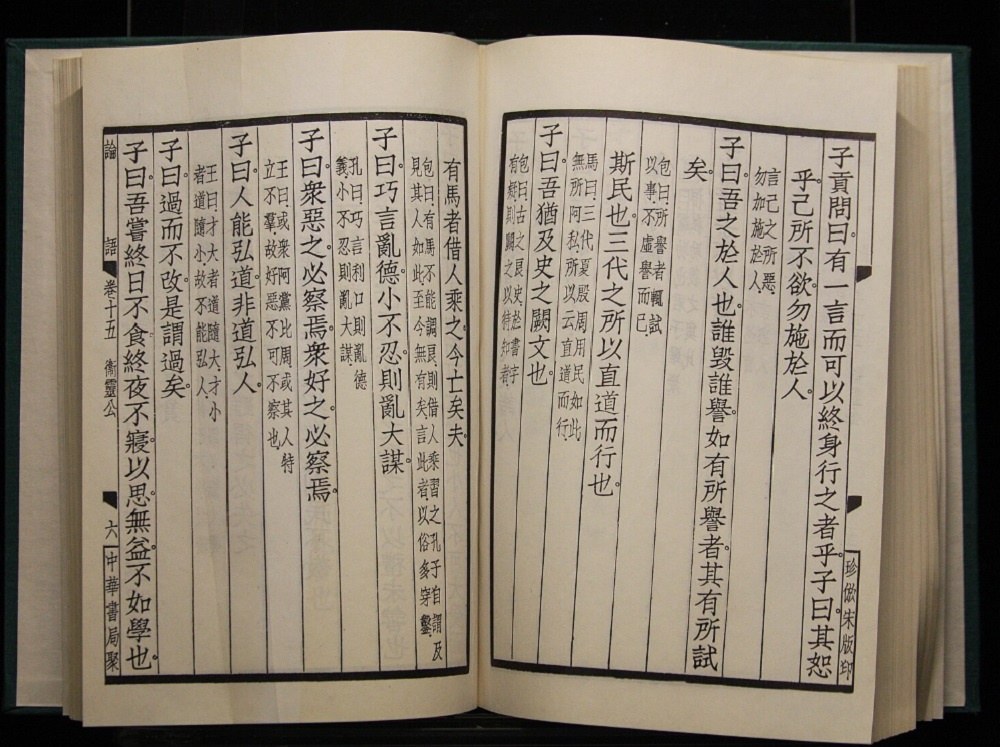 子貢問曰。有一言而可以終身行之者乎。子曰。其恕
乎。己所不欲。勿施於人。
言己之所惡。
勿加施於人。
子曰。吾之於人也。誰毀誰譽。如有所譽者。其有所試
矣。
包曰。所譽者。輒試
以事。不虛譽而已。
斯民也。三代之所以直道而行也。
馬曰。三代。夏殷周。用民如此
無所阿私。所以云直道而行。
子曰。吾猶及史之闕文也。
包曰。古之良史。於書字
有疑則闕之。以待知者。
珍倣宋版印
有馬者借人乘之。今亡矣夫。
包曰。有馬不能調良。則借人乘習之。孔子自謂及
見其人如此。至今無有矣。言此者。以俗多穿鑿。
子曰。巧言亂德。小不忍則亂大謀。
孔曰。巧言利口則亂德
義。小不忍則亂大謀。
子曰。衆惡之。必察焉。衆好之。必察焉。
王曰。或衆阿黨比周。或其人特
立不羣。故好惡不可不察也。
子曰。人能弘道。非道弘人。
王曰。才大者道隨大。才小
者道隨小。故不能弘人。
子曰。過而不改。是謂過矣。
子曰。吾嘗終日不食。終夜不寢。以思。無益。不如學也。
論語 卷十五 衞靈公 六 中華書局聚